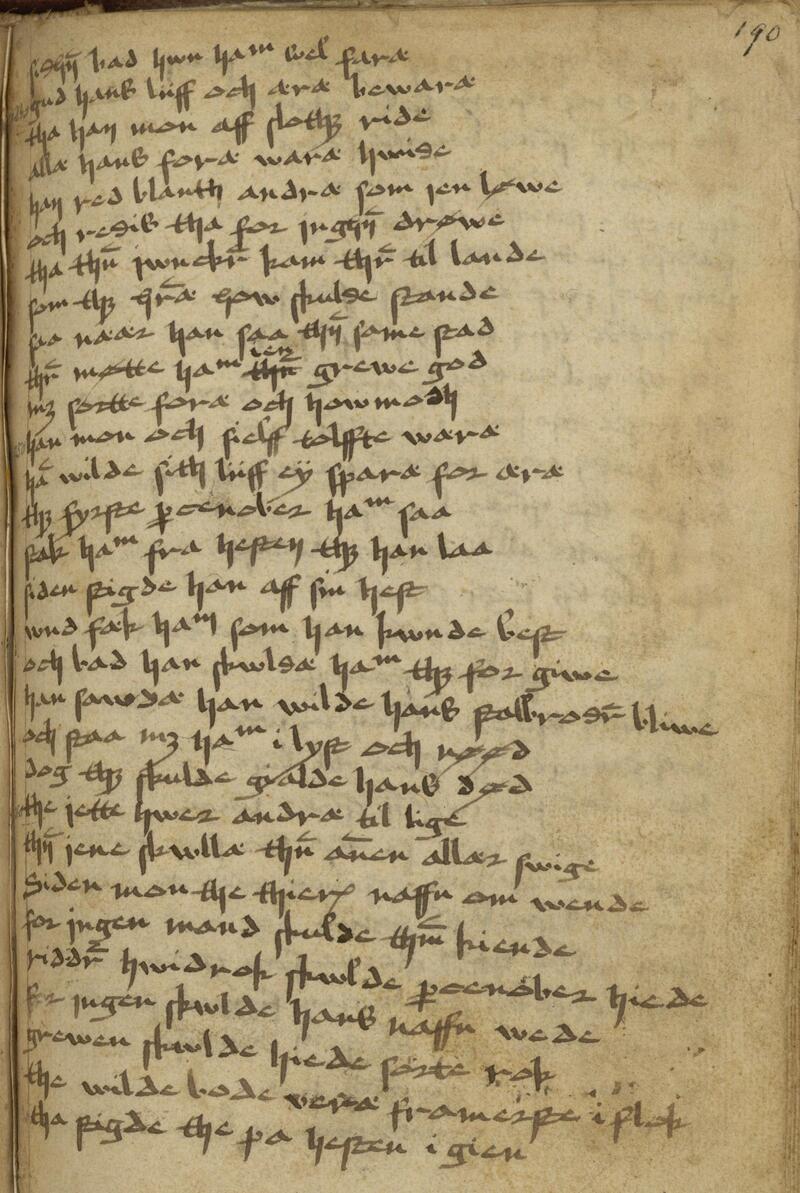 190
bad hwn ham wel faræ
gud hans liiff och æræ bewaræ
tha han mon aff slothz ride
allæ hans foræ waræ hwise
han red blanth andræ som ien løwe
och resis tha for inghn̄ drøwe
tha thn̄ iwnckr̄ kam thr̄ til lande
som thz how skulde stande
saa næær han saa thn̄ same stad
thr̄ møtte ham ien grewe god
mz sortte foræ och howmodh
han mon och sielff tolffte wæræ
hā wilde sith liiff eÿ sparæ for æræ
thz fyrste pcenober ham saa
stak ham fra hesten thz han laa
siden stigde han aff sin hest
wnd fæk ham som han kwnde best
och bad han skwlsæ ham thz for giwe
han sawdæ han wilde hans stalbrodr̄ bliwe
och staa mz ham i lyst och nøød
dog thz skulde giælde hans død
the iette hwer andræ til lige
thn̄ iene skwllæ thn̄ an̄en allær swige
Siden mon the thieræ naffn om wende
for ingen mand skulde thm̄ kiende
riddr̄ hwidrok skwlde pcenober hiede
for ingen skwlde hans naffn wede
grewen skwlde hiede sorte rok
the wilde bode veræ framerste i flok
tha stigde the pa hesten i gien